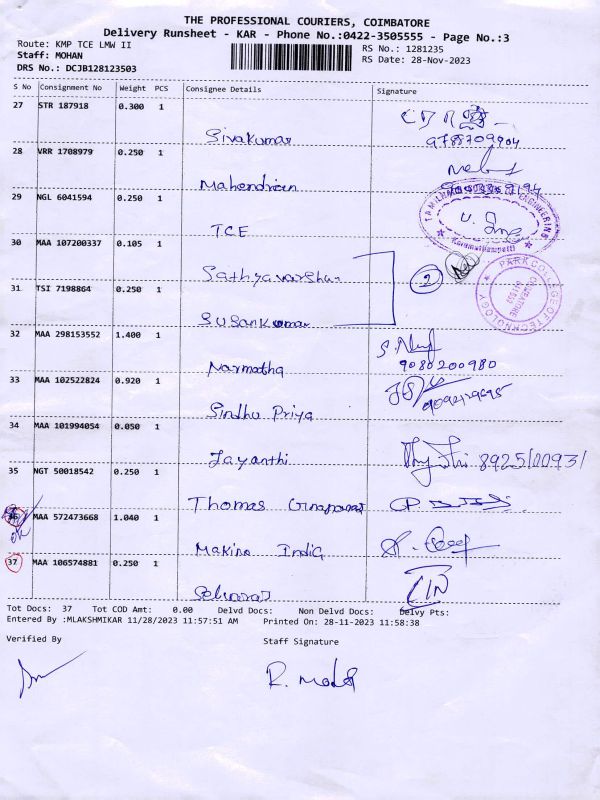 THE PROFESSIONAL COURIERS, COIMBATORE
Delivery Runsheet - KAR - Phone No.:0422-3505555 - Page No.:3
Route: KMP TCE LMW II RS No.: 1281235
Staff: MOHAN RS Date: 28-Nov-2023
DRS No.: DCJB128123503
S No Consignment No Weight PCS Consignee Details Signature
27 STR 187918 0.300 1
Sivakumar 9788709904
28 VRR 1708979 0.250 1
Mahendran
29 NGL 6041594 0.250 1
TCE
30 MAA 107200337 0.105 1
Sathyavarshan 2
31 TSI 7198864 0.250 1
PARK COLLEGE OF TECHNOLOGY
Susankumar
32 MAA 298153552 1.400 1
Narmatha 9080200980
33 MAA 102522824 0.920 1
Sindhu Priya
34 MAA 101994054 0.050 1
Jayanthi
35 NGT 50018542 0.250 1
Thomas
36 MAA 572473668 1.040 1
Makino India
37 MAA 106574881 0.250 1
Tot Docs: 37 Tot COD Amt: 0.00 Delvd Docs: Non Delvd Docs: Delvy Pts:
Entered By :MLAKSHMIKAR 11/28/2023 11:57:51 AM Printed On: 28-11-2023 11:58:38
Verified By Staff Signature